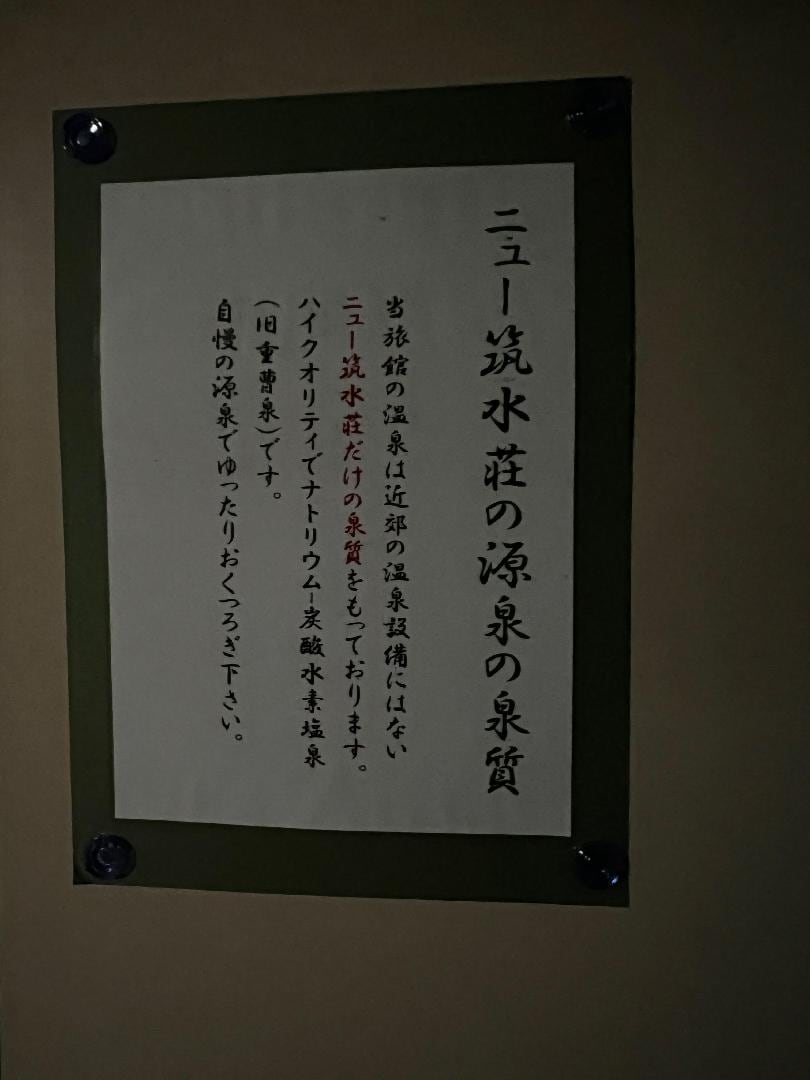 ニュー筑水荘の源泉の泉質
当旅館の温泉は近郊の温泉設備にはない
ニュー筑水荘だけの泉質をもっております。
ハイクオリティでナトリウム-炭酸水素塩泉
(旧重曹泉)です。
自慢の源泉でゆったりおくつろぎ下さい。